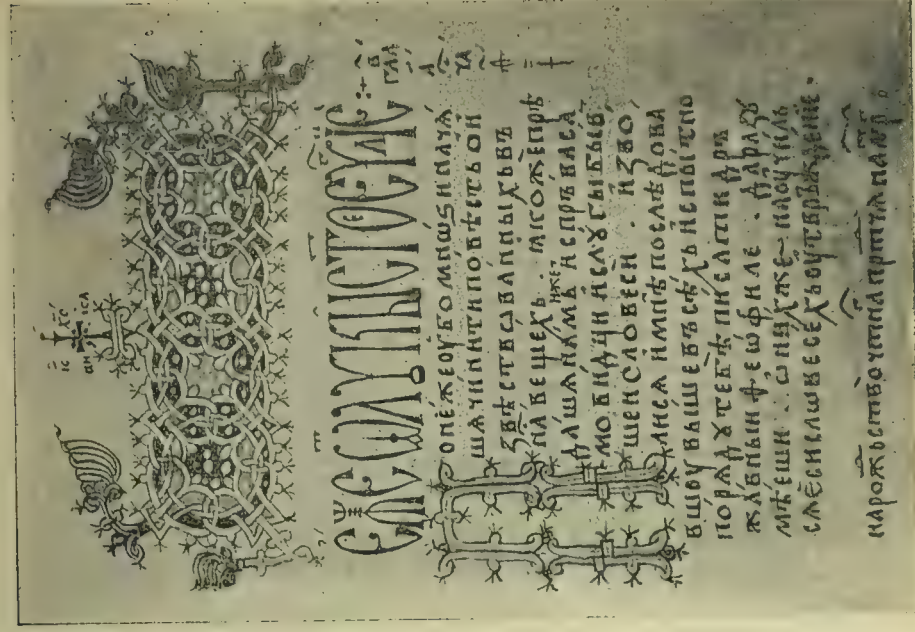 ІС ХС
СТОЕ
ГЛА
А
ЗА
ОНЕЖЕ ОУБО МНѠЅИ НАЧѦ
ШѦ ЧИНИТИ ПОВѢСТЬ О И
ЗВѢСТВОВАННЫХЪ ВЪ
НА ВЕЩЕХЪ . ꙖКОЖЕ ПРѢ
ДАШѦ НАМЪ ИЖЕ ИСПРЪВА СА
МОВИДЦИ И СЛꙊГЫ БЫВЪ
ШЕИ СЛОВЕСИ . ИЗВО
ЛИСѦ И МНѢ ПОСЛѢДОВА
ВШОУ ВЫШЕ ВЪСѢХЪ ИСПЫТНО
ПОРѦДꙊ ТЕБѢ ПИСАТИ ДРЪ
ЖАВНЫИ ѲЕѠФИЛЕ . ДА РАЗꙊ
МѢЕШИ . Ѡ НИХЖЕ НАОУЧИЛЪ
СѦ ЕСИ СЛОВЕСЕХЪ ОУТВРЪЖЕНИЕ .
НА РОЖЬСТВО ЧТНАА ПРТЧА